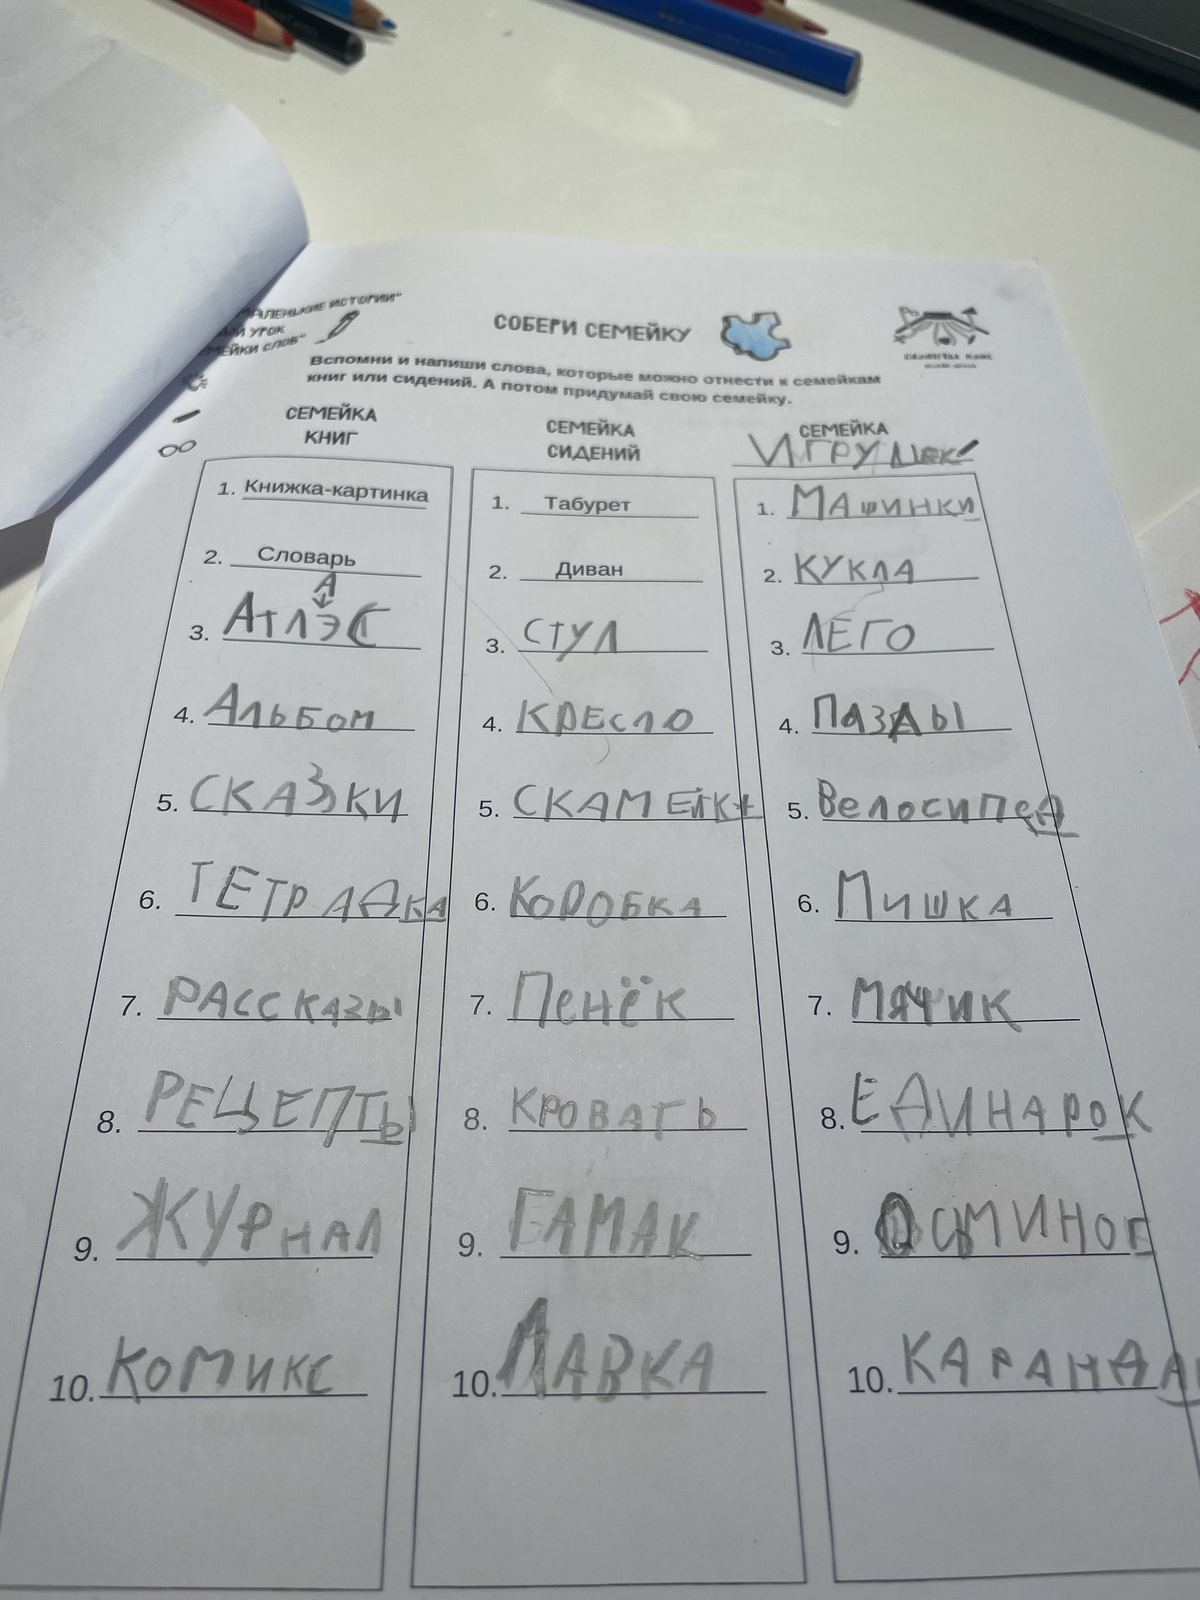 МАЛЕНЬКИЕ ИСТОРИИ"
УРОК
СЛОВ"
СОБЕРИ СЕМЕЙКУ
Вспомни и напиши слова, которые можно отнести к семейкам
книг или сидений. А потом придумай свою семейку.
СЕМЕЙКА
КНИГ
1. Книжка-картинка
2. Словарь
А
3. АТЛЭС
4. АЛЬБОМ
5. СКАЗКИ
6. ТЕТРАДКА
7. РАССКАЗЫ
8. РЕЦЕПТЫ
9. ЖУРНАЛ
10. КОМИКС
СЕМЕЙКА
СИДЕНИЙ
1. Табурет
2. Диван
3. СТУЛ
4. КРЕСЛО
5. СКАМЕЙКА
6. КОРОБКА
7. ПЕНЁК
8. КРОВАТЬ
9. ГАМАК
10. ЛАВКА
СЕМЕЙКА
ИГРУШЕК
1. МАШИНКИ
2. КУКЛА
3. ЛЕГО
4. ПАЗЛЫ
5. ВЕЛОСИПЕД
6. МИШКА
7. МЯЧИК
8. ЕДИНАРОК
9. ОСЬМИНОГ
10. КАРАНДА